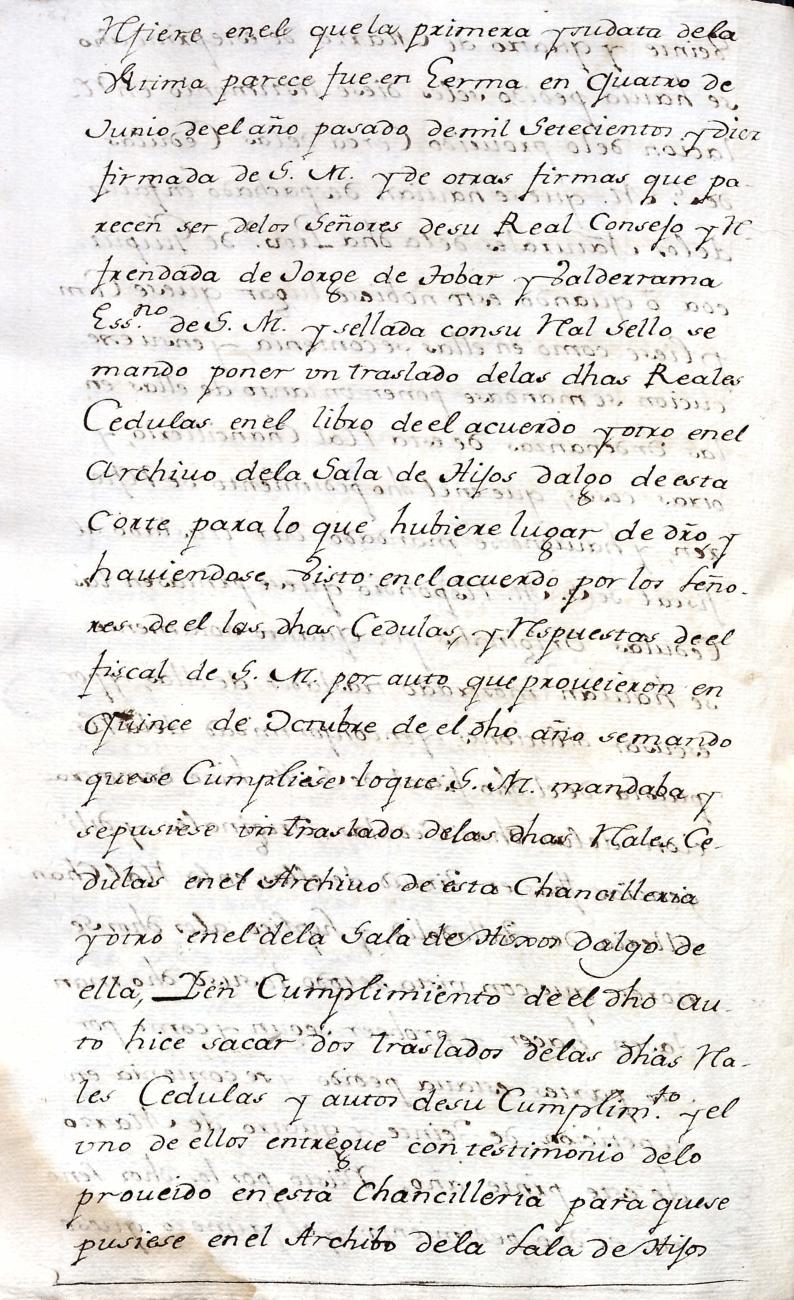 Rfiere enel que la primera y sudata dela
Vltima parece fue en Lerma en Quatro de
Junio, de el año pasado, demil Setecientos y diez
firmada de S. M. y de otras firmas que pa-
recen ser delos Señores desu Real Consejo y R-
frendada de Jorge de Tobar y Valderrama
Ess.no de S. M. y sellada consu Ral Sello se
mando poner vn traslado delas dhas Reales
Cedulas enel libro de el acuerdo y otro enel
Archiuo dela Sala de Hijos dalgo de esta
Corte para lo que hubiere lugar de dro, y
hauiendose, Visto enel acuerdo por los Seño-
res de el las, dhas Cedulas, y Rspuestas de el
fiscal de S. M. por auto que proueieron en
Quince de Octubre de el dho año semando
quese Cumpliese loque S. M. mandaba y
sepusiese vn traslado delas dhas Rales Ce-
dulas enel Archiuo de esta Chancilleria
y otro enel dela Sala de Hixos dalgo de
ella, Y en Cumplimiento de el dho au-
to hice sacar dos traslados delas dhas Ra-
les Cedulas y autos desu Cumplim.to y el
vno de ellos entregue con testimonio delo
proueido en esta Chancilleria para quese
pusiese enel Archibo dela Sala de Hijos